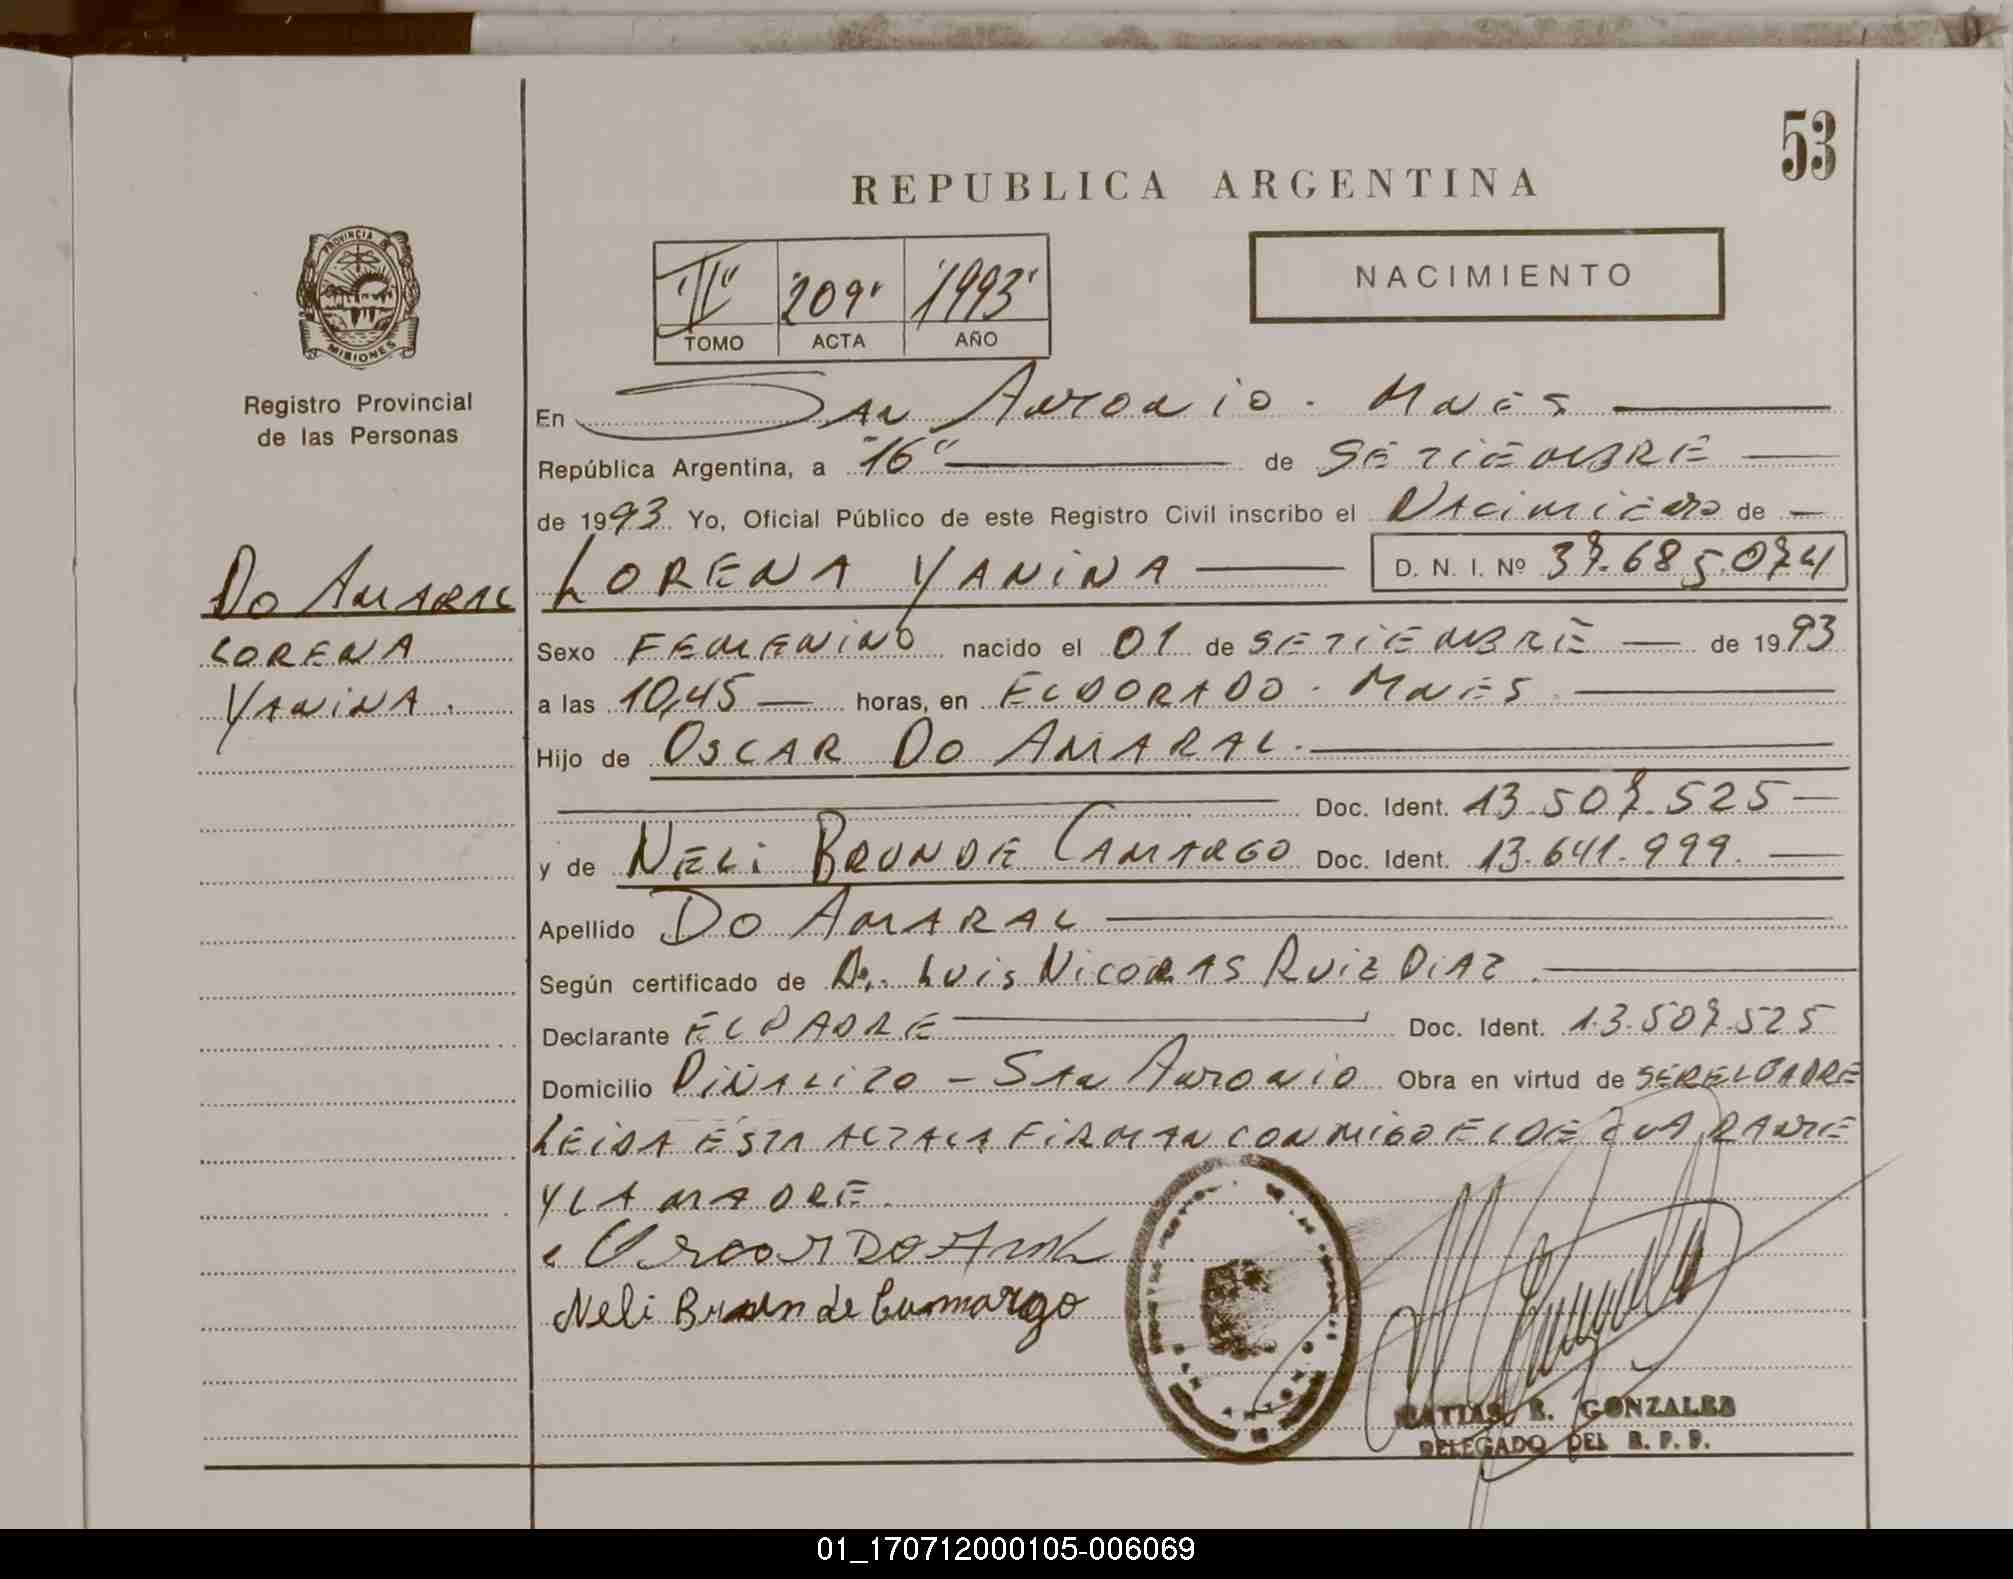 53
REPUBLICA ARGENTINA
NACIMIENTO
"II" "209" "1993"
TOMO ACTA AÑO
PROVINCIA DE
MISIONES
Registro Provincial
de las Personas
En San Antonio - Mnes
República Argentina, a "16" de SETIEMBRE
de 1993 Yo, Oficial Público de este Registro Civil inscribo el Nacimiento de
DO AMARAL
LORENA
YANINA.
LORENA YANINA D. N. I. Nº 37.685.074
Sexo FEMENINO nacido el 01 de SETIEMBRE de 1993
a las 10,45 horas, en ELDORADO - MNES
Hijo de OSCAR DO AMARAL.
Doc. Ident. 13.507.525
y de NELI BRUN DE CAMARGO Doc. Ident. 13.641.999.
Apellido DO AMARAL
Según certificado de Dr. LUIS NICOLAS RUIZ DIAZ.
Declarante EL PADRE Doc. Ident. 13.507.525
Domicilio PIÑALITO - SAN ANTONIO Obra en virtud de SER EL PADRE
LEIDA ESTA ACTA LA FIRMAN CONMIGO EL DECLARANTE
Y LA MADRE.
Neli Brun de Camargo
MATIAS R. GONZALEZ
DELEGADO DEL R. P. P.
01_170712000105-006069